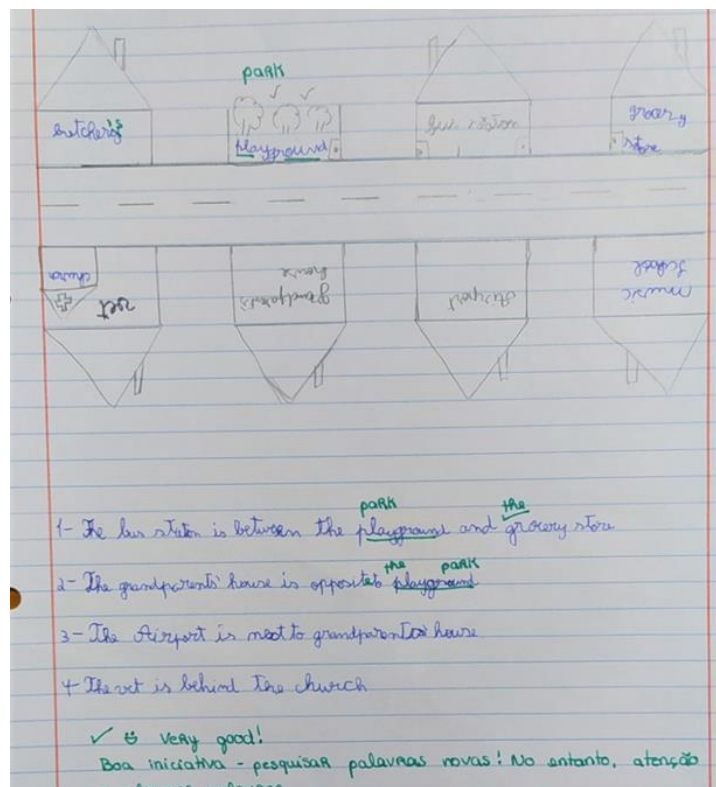 park
butcher's
playground
bus station
grocery
store
church
vet
grandparents'
house
Airport
music
school
park the
1- The bus station is between the playground and grocery store
the park
2- The grandparents' house is opposite playground
3- The Airport is next to grandparents' house
4- The vet is behind the church
✓ very good!
Boa iniciativa - pesquisar palavras novas! No entanto, atenção